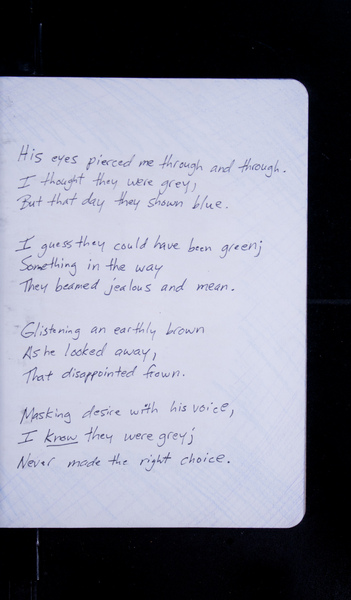 His eyes pierced me through and through.
I thought they were grey;
But that day they shown blue.
I guess they could have been green;
Something in the way
They beamed jealous and mean.
Glistening an earthly brown
As he looked away,
That disappointed frown.
Masking desire with his voice,
I know they were grey;
Never made the right choice.